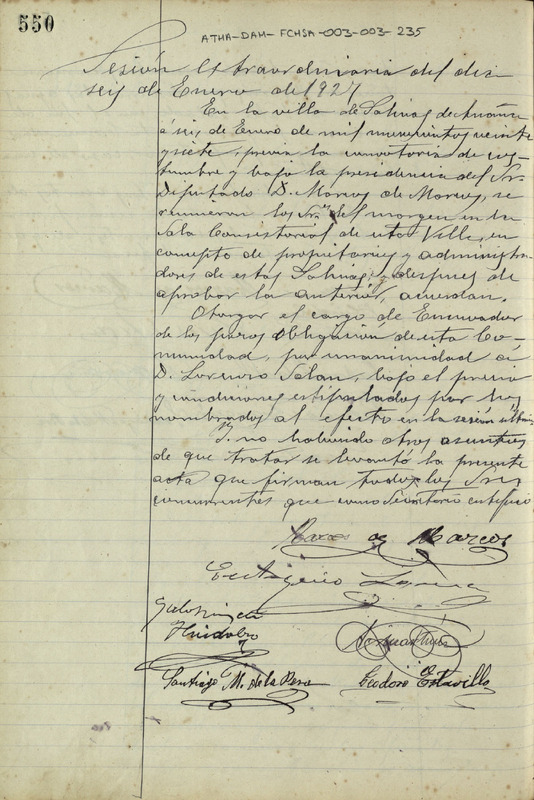 550
ATHA-DAH-FCHSA-003-003-235
Sesión Extraordinaria del dia
seis de Enero de 1927
En la villa de Salinas de Añana
á seis de Enero de mil novecientos veinte
y siete, previa la convocatoria de cos-
tumbre y bajo la presidencia del Sr.
Diputado D. Marcos de Marcos, se
reunieron los Srs del margen en la
Sala Consistorial de esta Villa, en
concepto de propietarios y administra-
dores de estas Salinas, y despues de
aprobar la anterior, acuerdan.
Otorgar el cargo de
de los pozos obligación de esta Co-
munidad, por unanimidad á
D. Lorenzo bajo el precio
y condiciones estipulados por los
nombrados al efecto en la sesión última
Y no habiendo otros asuntos
de que tratar se levantó la presente
acta que firman todos los Sres
concurrentes que como Secretario certifico
Marcos de Marcos
Eustaquio
Huidobro
Santiago M. de la Pera
Teodoro Estavillo